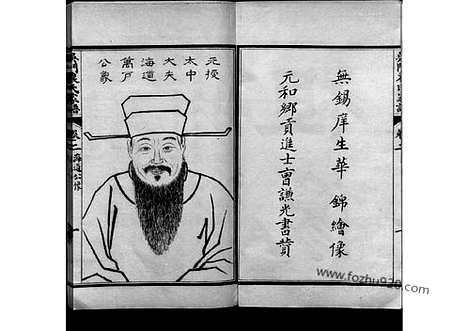 無錫庠生華 錦繪像
元和鄉貢進士曹謙光書贊
元授
太中
大夫
海道
萬戶
公象
卷二 海道公像
www.fozhu920.com